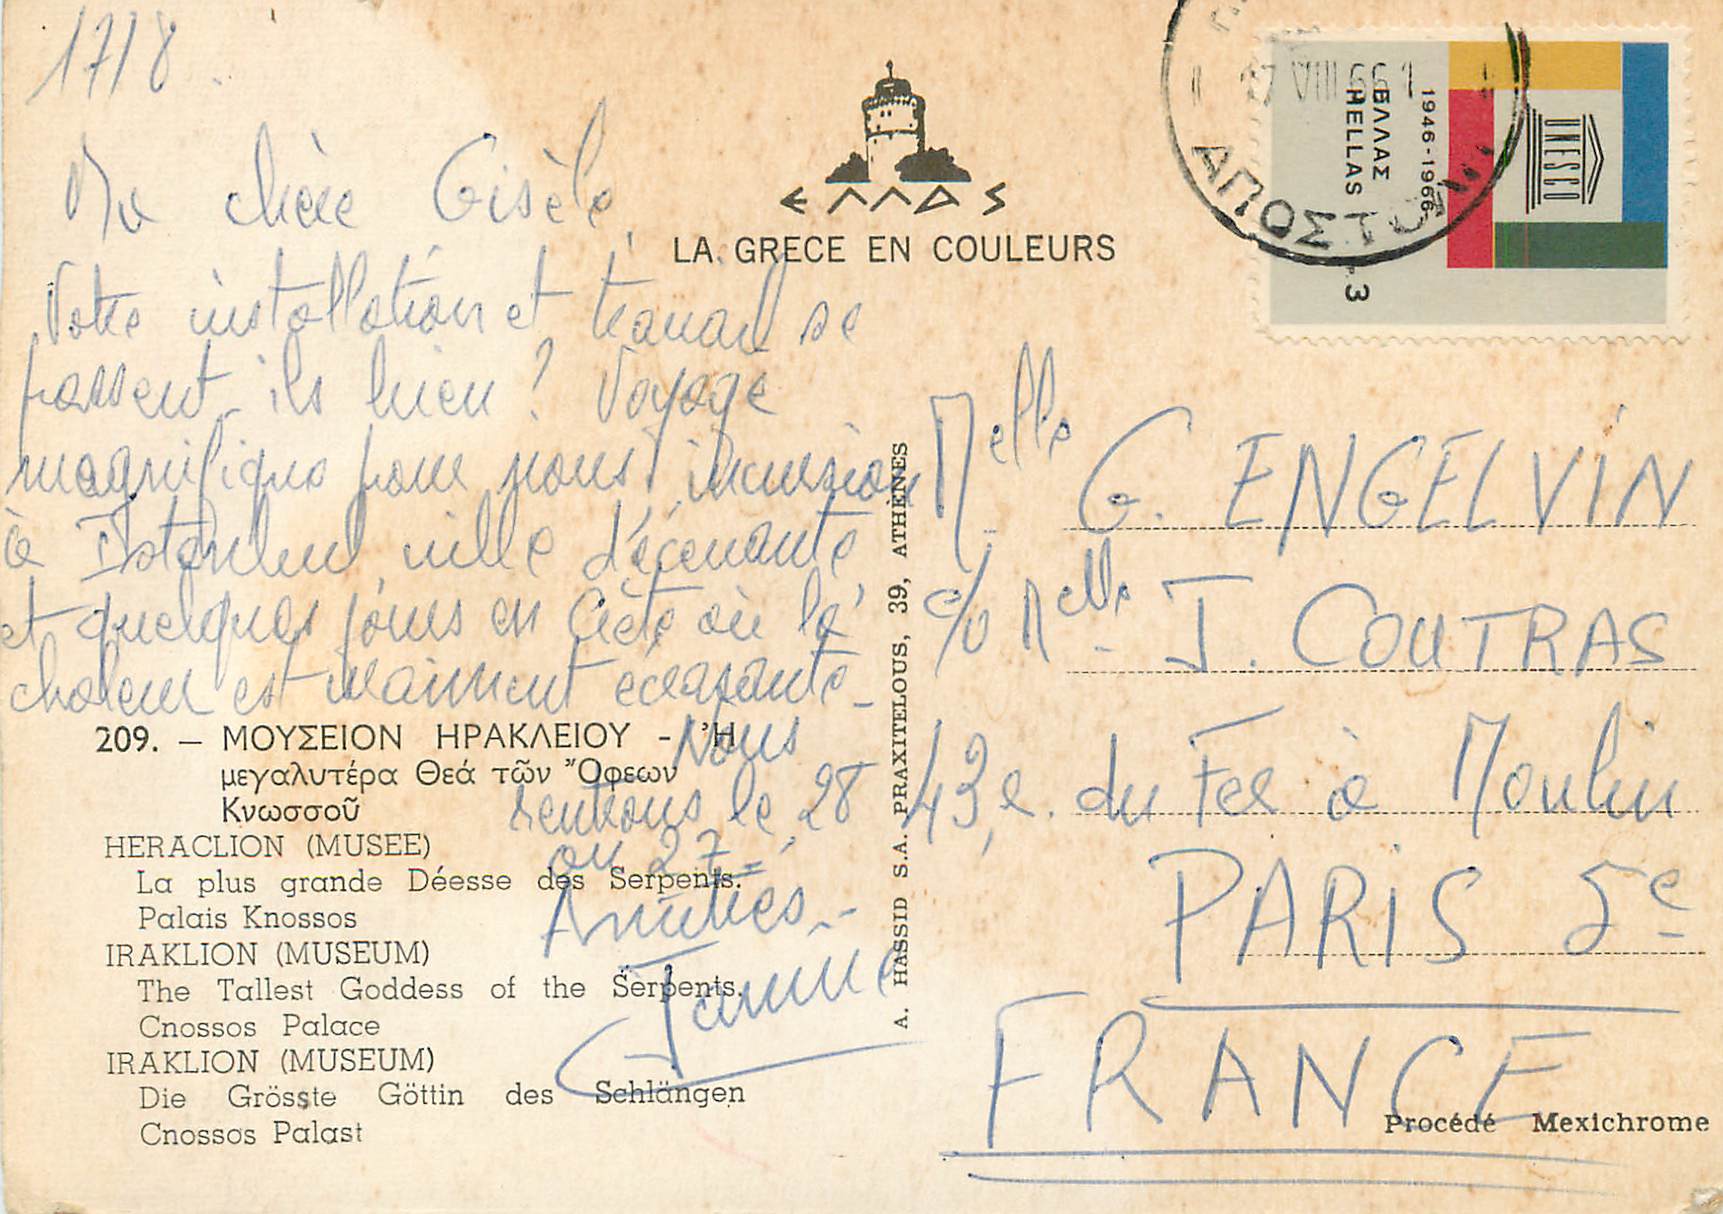 17/8
Ma chère Gisèle,
Votre installation et travail se
passent-ils bien ? Voyage
magnifique pour nous, incursion
à Istanbul, ville décevante
et quelques jours en Crète où la
chaleur est vraiment écrasante_
Nous
rentrons le 28
ou 27=
Amitiés_
Janine
ΕΛΛΑΣ
LA GRECE EN COULEURS
209. — ΜΟΥΣΕΙΟΝ ΗΡΑΚΛΕΙΟΥ - Ἡ
μεγαλυτέρα Θεά τῶν Ὄφεων
Κνωσσοῦ
HERACLION (MUSEE)
La plus grande Déesse des Serpents.
Palais Knossos
IRAKLION (MUSEUM)
The Tallest Goddess of the Serpents.
Cnossos Palace
IRAKLION (MUSEUM)
Die Grösste Göttin des Schlängen
Cnossos Palast
A. HASSID S.A. PRAXITELOUS, 39, ATHÈNES
1946-1966
ΕΛΛΑΣ
HELLAS
3
UNESCO
VIII 66
ΑΠΟΣΤΟ
Melle G. ENGELVIN
c/o Melle J. COUTRAS
43, R. du Fer à Moulin
PARIS 5e
FRANCE
Procédé Mexichrome